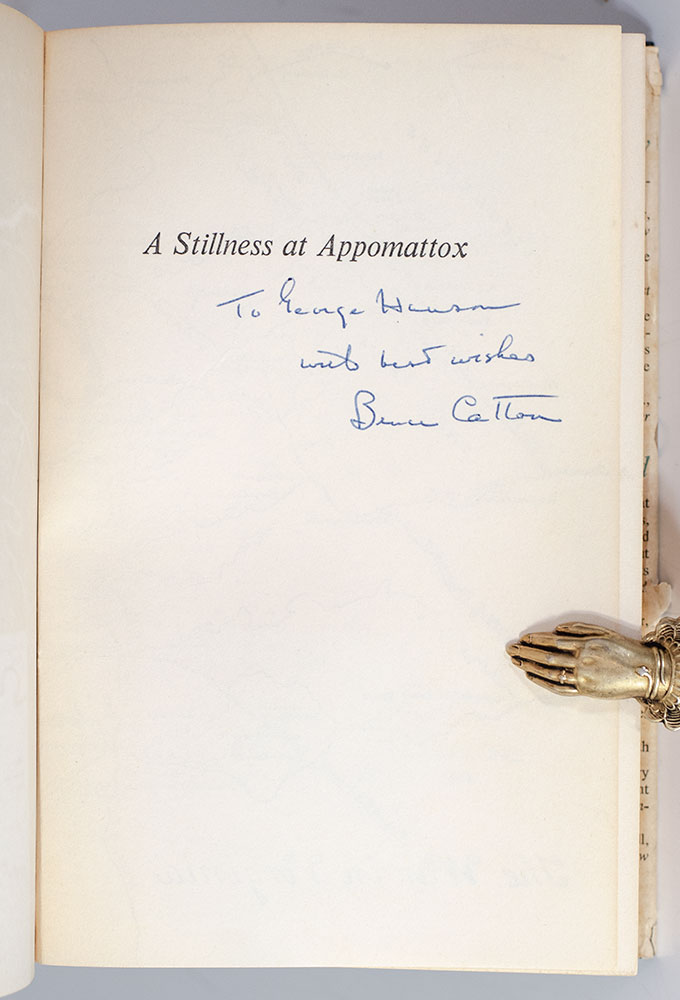 A Stillness at Appomattox
To George Hanson
with best wishes
Bruce Catton